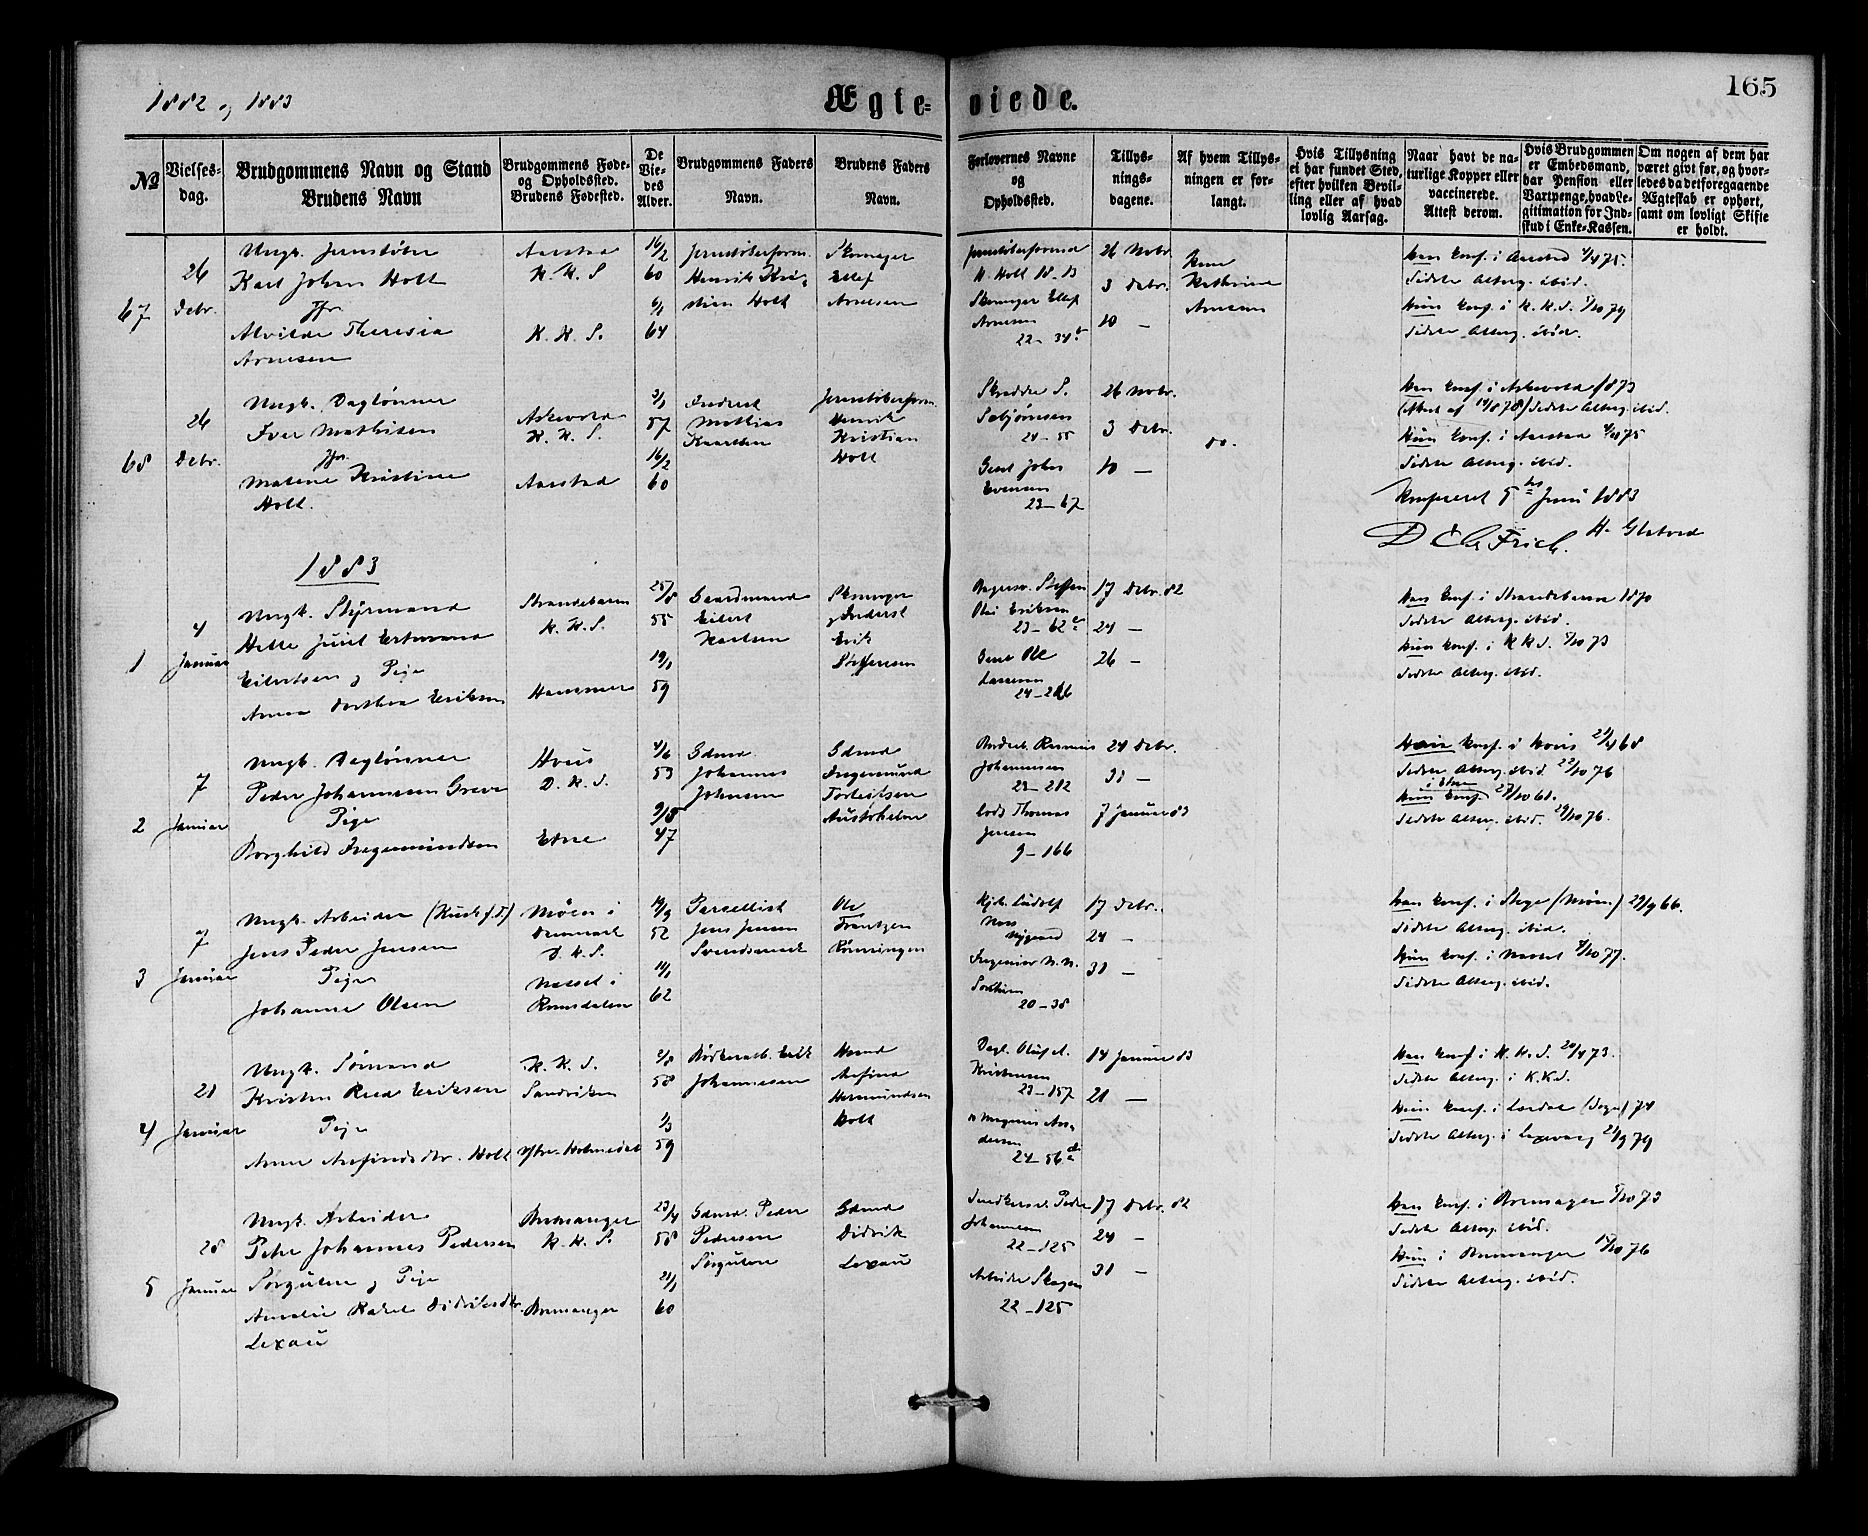 1882 og 1883
Ægte-viede.
165
No
Vielses-dag.
Brudgommens Navn og Stand
Brudens Navn
Brudgommens Føde- og Opholdssted.
Brudens Fødested.
De Vie-des Alder.
Brudgommens Faders Navn.
Brudens Faders Navn.
Forlovernes Navne og Opholdssted.
Tillys-nings-dagene.
Af hvem Tillys-ningen er for-langt.
Hvis Tillysning ei har fundet Sted, efter hvilken Bevil-ling eller af hvad lovlig Aarsag.
Naar havt de na-turlige Kopper eller vaccinerede. Attest derom.
Hvis Brudgommen er Embedsmand, har Pension eller Vartpenge, hvad Le-gitimation for Ind-skud i Enke-Kassen.
Om nogen af dem har været givt før, og hvor-ledes da det foregaaende Ægteskab er ophørt, samt om lovligt Skifte er holdt.
67
26 Debr.
Ungk. Jernstøber
Karl Johan Holt
Jfr.
Alvilde Theresia
Arnesen
Aarstad
K. K. S
K. K. S.
16/2 60
6/1 64
Jernstøberform.
Henrik Kri-
stian Holt
Skomager
Ellef
Arnesen
Jernstøberformd
H. Holt
Skomager Ellef
Arnesen
22-34
26 Novbr.
3 Debr.
10 —
Kone
Kathrine
Arnesen
Han konf. i Aarstad 4/4 75.
Sidste Alterg. ibid.
Hun konf. i K. K. S. 5/10 79
Sidste Alterg. ibid.
68
26 Debr.
Ungk. Daglønner
Iver Mathisen
Jfr.
Malene Kristine
Holt.
Askevold
K. K. S.
Aarstad
3/1 57
16/2 60
Inderst
Mathias
Jernstøberform.
Henrik
Kristian
Holt
Skrædder S.
24-55
Gert Johs
Evensen
23-67
26 Novbr.
3 Debr.
10 —
do.
Han konf. i Askevold 1873
(Attest af 14/8 78) Sidste Alterg. ibid.
Hun konf. i Aarstad 4/4 75
Sidste Alterg. ibid.
Konfereret 5te Juni 1883
D C Frich. H. Gletved
1883
1
4 Januar
Ungk. Styrmand
Helle Juul Ertmand
Eilertsen og Pige
Anna Dorthea Eriksen
Strandebarm
K. K. S.
Hammer
25/8 55
19/1 59
Gaardmand
Eilert
Karlsen
Skomager
Inderst
Erik
Steffensen
Steffen
Olai Eriksen
23-62
Ole
Larsen
24-206
17 Debr. 82
24 —
26 —
Han konf. i Strandebarm 1870
Sidste Alterg. ibid.
Hun konf. i K K S. 5/10 73
Sidste Alterg. ibid.
2
7 Januar
Ungk. Daglønner
Peder Johannesen Greve
Pige
Borghild Ingemundsen
Hous
D. K. S.
Etne
4/6 53
9/5 47
Gdmd
Johannes
Johnsen
Gdmd
Ingemund
Torleifsen
Austrheim
Rasmus
Johannesen
23-212
Lods Thomas
Jensen
9-166
24 Debr.
31 —
7 Januar 83
Han konf. i Hous 21/4 68
Sidste Alterg. ibid. 22/10 76
i Etne
Hun konf. 27/10 61.
Sidste Alterg. ibid. 29/10 76.
3
7 Januar
Ungk. Arbeider
Jens Peder Jensen
Pige
Johanne Olsen
Møen i
Danmark
D. K. S.
Nesset i
Romsdalen
19/9 52
14/1 62
Parcellist
Jens Jensen
Svendsmark
Ole
Frantzen
Rønningen
Ludolf
Moss
Nygaard
Ingeniør N. N.
Sontum
20-38
17 Debr.
24 —
31 —
Han konf. i Stege (Møen) 29/9 66.
Sidste Alterg. ibid.
Hun konf. i Nesset 8/10 77.
Sidste Alterg. ibid.
4
21 Januar
Ungk. Sømand
Kristen Reed Eriksen
Pige
Anne Anfindsdtr. Holt
K. K. S.
Sandviken
Ytre-Holmedal
2/8 58
1/3 59
Bødkerarb. Erik
Johannesen
Husmd
Anfind
Hermundsen
Holt
Dagl. Oluf A.
Kristensen
23-157
Magnus An-
dersen
24-56
14 Januar 83
21 —
Han konf. i K. K. S. 20/4 73.
Sidste Alterg. i K.K.S.
Hun konf. i Lærdal (Sogn) 74
Sidste Alterg. i Lexvaag 21/9 79
5
28 Januar
Ungk. Arbeider
Peter Johannes Pedersen
Sørgulen og Pige
Amalie Rakel Didriksdtr.
Lexau
Bremanger
K. K. S.
Bremanger
23/4 58
21/1 60
Gdmd. Peder
Pedersen
Sørgulen
Gdmd
Didrik
Lexau
Peder
Johannesen
22-125
Arbeider Skogen
22-125
17 Debr. 82
24 —
31 —
Han konf. i Bremanger 5/10 73
Sidste Alterg. ibid.
Hun i Bremanger 15/10 76
Sidste Alterg. ibid.